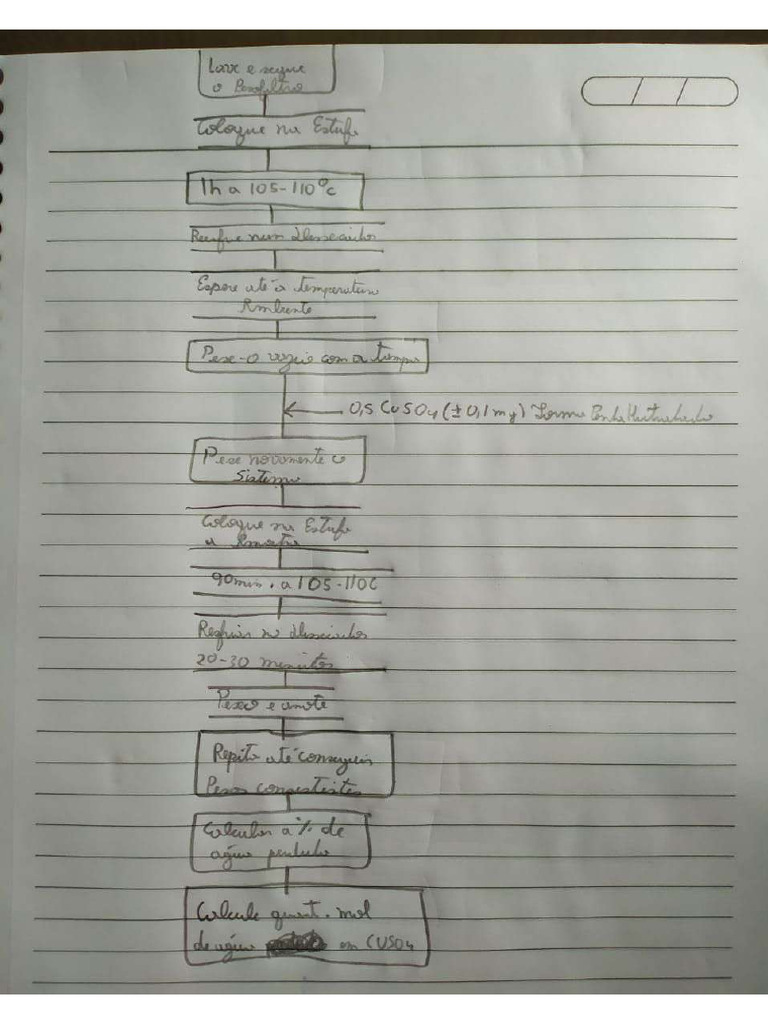 Lave e seque
o Pesafiltro
Coloque na Estufa
1h a 105-110°C
Resfrie num dessecador
Espere até a temperatura
Ambiente
Pese-o vazio com a tampa
0,5 CuSO4 (± 0,1 mg) Forma
Pese novamente o
Sistema
Coloque na Estufa
a Amostra
90min. a 105-110C
no dessecador
20-30 minutos
Pese e anote
Repita até conseguir
Pesos consistentes
Calcular a % de
água perdida
Calcule quant. mol
de água em CUSO4